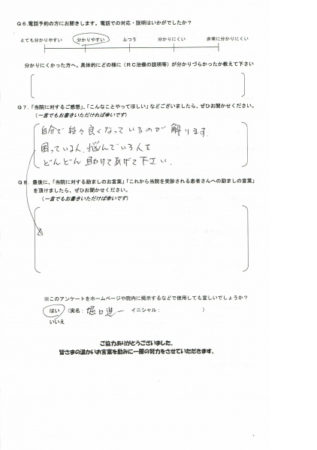 Q6.電話予約の方にお聞きします。電話での対応・説明はいかがでしたか?
とても分かりやすい 分かりやすい ふつう 分かりにくい 非常に分かりにくい
分かりにくかった方へ。具体的にどの様に(料金治療の説明等)が分かりづらかったか教えて下さい
Q7.「当院に対するご感想」、「こんなことやってほしい」などございましたら、ぜひお聞かせください。
(一言でもお書きいただければ幸いです)
自分で段々良くなっているのが解ります
困っている人、悩んでいる人を
どんどん助けてあげて下さい。
Q8.最後に、「当院に対する励ましのお言葉」「これから当院を受診される患者さんへの励ましの言葉」
を頂けましたら、ぜひお聞かせください。
(一言でもお書きいただければ幸いです)
※このアンケートをホームページや院内に掲示するなどで使用しても宜しいでしょうか?
はい (実名: 堀口 一 イニシャル: )
いいえ
ご協力ありがとうございました。
皆さまの温かいお言葉を励みに一層の努力をさせていただきます。